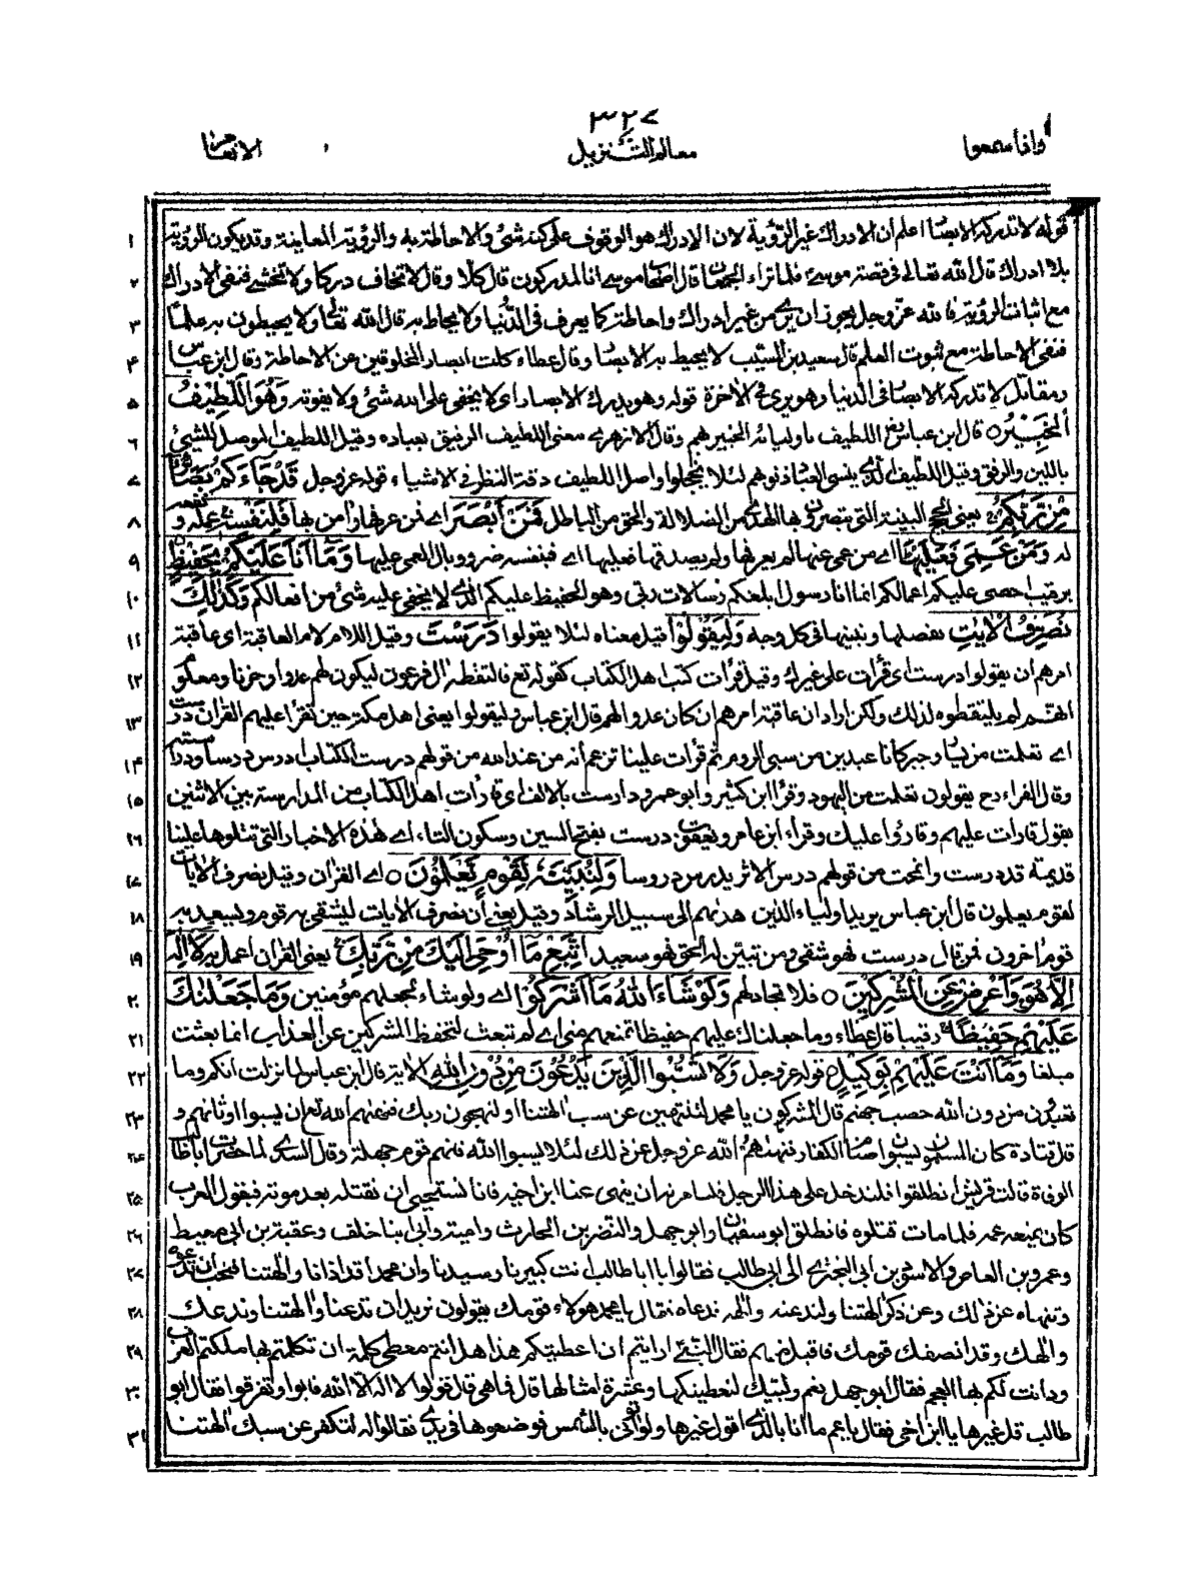 ٣٢٧
واذا سمعوا
معالم التنزيل
الانعام
قوله لا تدركه الابصار اعلم ان الادراك غير الرؤية لان الادراك هو الوقوف على كنه شئ والاحاطة به والرؤية المعاينة وقد يكون الرؤية ١
بلا ادراك قال الله تعالى فى قصة موسى فلما تراء الجمعان قال اصحاب موسى انا لمدركون قال كلا وقال لا تخاف دركا ولا تخشى فنفى الادراك ٢
مع اثبات الرؤية فالله عز وجل يجوز ان يرى من غير ادراك واحاطة كما يعرف فى الدنيا ولا يحاط به قال الله تعالى ولا يحيطون به علما ٣
فنفى الاحاطة مع ثبوت العلم قال سعيد بن المسيب لا يحيط به الابصار وقال عطاء كلت ابصار المخلوقين عن الاحاطة وقال ابن عباس ٤
ومقاتل لا تدركه الابصار فى الدنيا وهو يرى فى الآخرة قوله وهو يدرك الابصار اى لا يخفى على الله شئ ولا يفوته وَهُوَ اللَّطِيْفُ ٥
الْخَبِيْرُ ○ قال ابن عباس رض اللطيف باوليائه الخبير بهم وقال الازهرى معنى اللطيف الرفيق بعباده وقيل اللطيف الموصل الشئ ٦
باللين والرفق وقيل اللطيف الذى ينسى العباد ذنوبهم لئلا يخجلوا واصل اللطيف دقة النظر فى الاشياء قوله عز وجل قَدْ جَاءَكُمْ بَصَائِرُ ٧
مِنْ رَبِّكُمْ يعنى الحجج البينة التى تبصرون بها الهدى من الضلالة والحق من الباطل فَمَنْ أَبْصَرَ اى فمن عرفها وآمن بها فَلِنَفْسِهٖ عمله و نفعه ٨
له وَمَنْ عَمِىَ فَعَلَيْهَا اى من عمى عنها لم يعرفها ولم يصدقها فعليها اى فبنفسه ضر ووبال العمى عليها وَمَا أَنَا عَلَيْكُمْ بِحَفِيْظٍ ٩
برقيب احصى عليكم اعمالكم انما انا رسول ابلغكم رسالات ربى وهو الحفيظ عليكم الذى لا يخفى عليه شئ من افعالكم وَكَذٰلِكَ ١٠
نُصَرِّفُ الْاٰيٰتِ نفصلها ونبينها فى كل وجه وَلِيَقُوْلُوْا قيل معناه لئلا يقولوا دَرَسْتَ وقيل اللام لام العاقبة اى عاقبة ١١
امرهم ان يقولوا درست اى قرأت على غيرك وقيل قرأت كتب اهل الكتاب كقوله تع فالتقطه آل فرعون ليكون لهم عدوا وحزنا ومعلوم ١٢
انهم لم يلتقطوه لذلك ولكن اراد ان عاقبة امرهم ان كان عدوا لهم قال ابن عباس وليقولوا يعنى اهل مكة حين تقرأ عليهم القرآن درست ١٣
اى تعلمت من يسار وجبر كانا عبدين من سبى الروم ثم قرأت علينا تزعم انه من عند الله من قولهم درست الكتاب ادرس درسا ودراسة ١٤
وقال الفراء رح يقولون تعلمت من اليهود وقرأ ابن كثير وابو عمرو دارست بالالف اى قارأت اهل الكتاب من المدارسة بين الاثنين ١٥
يقول قارات عليهم وقارؤا عليك وقراء ابن عامر ويعقوب درست بفتح السين وسكون التاء اى هذه الاخبار التى تتلوها علينا ١٦
قديمة قد درست وانمحت من قولهم درس الاثر يدرس دروسا وَلِنُبَيِّنَهٗ لِقَوْمٍ يَّعْلَمُوْنَ ○ اى القرآن وقيل نصرف الآيات ١٧
لقوم يعلمون قال ابن عباس يريد اولياءه الذين هداهم الى سبيل الرشاد وقيل يعنى ان نصرف الآيات ليشقى به قوم ويسعد به ١٨
قوم آخرون فمن قال درست فهو شقى ومن تبين له الحق فهو سعيد اِتَّبِعْ مَا أُوْحِىَ اِلَيْكَ مِنْ رَّبِّكَ يعنى القرآن اعمل به لَا اِلٰهَ ١٩
اِلَّا هُوَ وَأَعْرِضْ عَنِ الْمُشْرِكِيْنَ ○ فلا تجادلهم وَلَوْ شَاءَ اللّٰهُ مَا أَشْرَكُوْا اى ولو شاء لجعلهم مؤمنين وَمَا جَعَلْنٰكَ ٢٠
عَلَيْهِمْ حَفِيْظًا رقيبا قال عطاء وما جعلناك عليهم حفيظا تمنعهم منى اى لم تبعث لتحفظ المشركين عن العذاب انما بعثت ٢١
مبلغا وَمَا أَنْتَ عَلَيْهِمْ بِوَكِيْلٍ قوله عز وجل وَلَا تَسُبُّوا الَّذِيْنَ يَدْعُوْنَ مِنْ دُوْنِ اللّٰهِ الآية قال ابن عباس لما نزلت انكم وما ٢٢
تعبدون من دون الله حصب جهنم قال المشركون يا محمد لتنتهين عن سب آلهتنا او لنهجون ربك فنهاهم الله تعالى ان يسبوا اوثانهم و ٢٣
قال قتادة كان المسلمون يسبون اصنام الكفار فنهاهم الله عز وجل عن ذلك لئلا يسبوا الله فانهم قوم جهلة وقال السدى لما حضرت ابا طالب ٢٤
الوفاة قالت قريش انطلقوا فلندخل على هذا الرجل فلنأمرنه ان ينهى عنا ابن اخيه فانا نستحيى ان نقتله بعد موته فتقول العرب ٢٥
كان يمنعه عمه فلما مات قتلوه فانطلق ابو سفيان وابو جهل والنضر بن الحارث وامية وابى ابنا خلف وعقبة بن ابى معيط ٢٦
وعمرو بن العاص والاسود بن ابى البخترى الى ابى طالب فقالوا يا ابا طالب انت كبيرنا وسيدنا وان محمدا قد اذانا وآلهتنا فنحب ان تدعوه ٢٧
وتنهاه عن ذلك وعن ذكر آلهتنا ولندعنه والهه فدعاه فقال يا محمد هؤلاء قومك يقولون نريد ان تدعنا وآلهتنا وندعك ٢٨
والهك وقد انصفك قومك فاقبل منهم فقال النبى أرايتم ان اعطيتكم هذا هل انتم معطى كلمة ان تكلمتم بها ملكتم العرب ٢٩
ودانت لكم بها العجم فقال ابو جهل نعم وابيك لنعطينكها وعشرة امثالها قال فما هى قال قولوا لا اله الا الله فابوا وتفرقوا فقال ابو ٣٠
طالب قل غيرها يا ابن اخى فقال يا عم ما انا بالذى اقول غيرها ولو اتونى بالشمس فوضعوها فى يدى فقالوا له لتكفن عن سبك آلهتنا ٣١